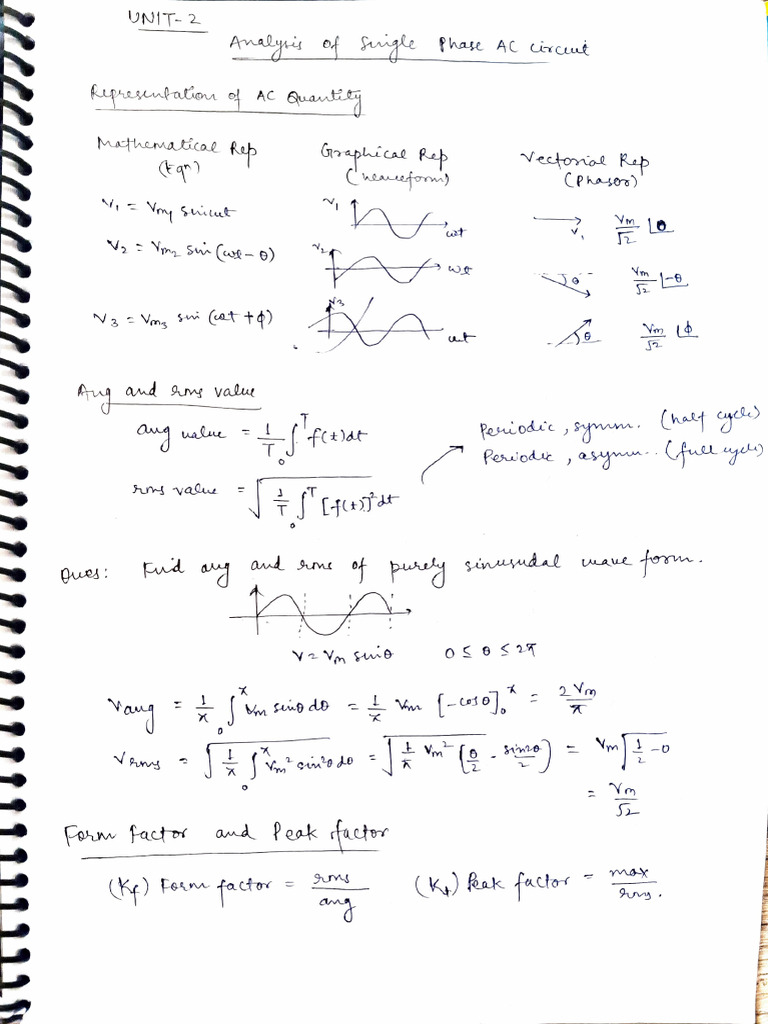 UNIT-2
Analysis of Single Phase AC circuit
Representation of AC Quantity
Mathematical Rep (Eqⁿ)
Graphical Rep (waveform)
Vectorial Rep (Phasor)
V₁ = Vm₁ sinωt
V₁
ωt
V₁
Vm/√2 ∠0
V₂ = Vm₂ sin(ωt - θ)
V₂
ωt
θ
Vm/√2 ∠-θ
V₃ = Vm₃ sin(ωt + ϕ)
V₃
ωt
θ
Vm/√2 ∠ϕ
Avg and rms value
avg value = 1/T ∫₀ᵀ f(t)dt
rms value = √(1/T ∫₀ᵀ [f(t)]² dt)
Periodic, symm. (half cycle)
Periodic, asymm.. (full cycle)
Ques: Find avg and rms of purely sinusudal wave form.
V = Vm sinθ 0 ≤ θ ≤ 2π
Vavg = 1/π ∫₀^π Vm sinθ dθ = 1/π Vm [-cosθ]₀^π = 2Vm/π
Vrms = √(1/π ∫₀^π Vm² sin²θ dθ) = √(1/π Vm² (θ/2 - sin2θ/2)) = Vm √(1/2 - 0)
= Vm/√2
Form factor and Peak factor
(Kf) Form factor = rms/avg (Kt) Peak factor = max/rms.